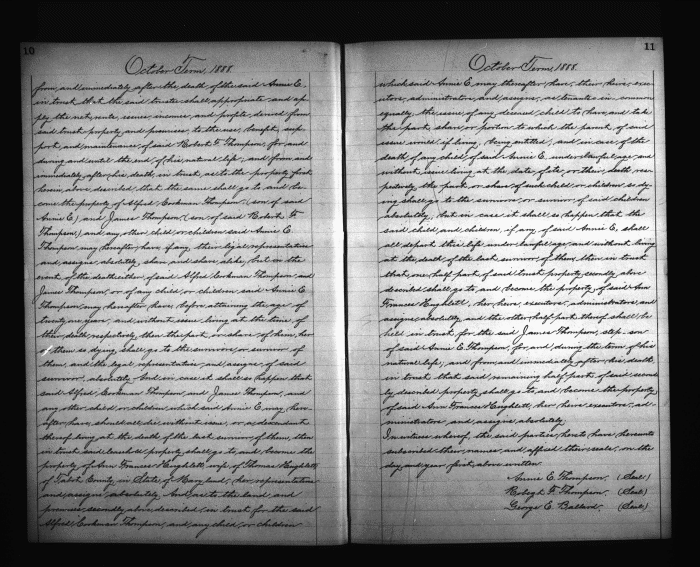 10
October Term, 1888
from, and immediately after the death of the said Annie E.
in trust that the said trustee shall appropriate and ap
ply the net, rents, issues, incomes, and profits, derived from
said trust property and premises to the use, benefit, sup
port, and maintenance of said Robert F. Thompson, for and
during and until the end of his natural life, and from and
immediately after his death, in trust, as to the property first
herein above described, that the same shall go to and be
come the property of Alfred Corkman Thompson, (son of said
Annie E.) and James Thompson (son of said Robert F.
Thompson,) and any other child or children said Annie E.
Thompson may hereafter have, if any, their legal representatives
and assigns absolutely, share and share alike, but in the
event of the death either of said Alfred Corkman Thompson and
James Thompson, or of any child or children said Annie E.
Thompson may hereafter have, before attaining the age of
twenty one years, and without issue living at the time of
their death respectively then the part, or share of him, her
or them so dying, shall go to the survivors, or survivor of
them, and the legal representatives and assigns, of said
survivor absolutely. And in case it shall so happen that
said Alfred Corkman Thompson and James Thompson, and
any other child or children which said Annie E. may here
after have, should all die without issue, or a descendant
thereof living at the death of the last survivor of them, then
in trust said property shall go to, and become the
property of Ann Frances Hughlett, wife of Thomas Hughlett
of Talbot County, in State of Maryland, her representatives
and assigns, absolutely. And as to the land, and
premises secondly above described, in trust for the said
Alfred Corkman Thompson, and any child, or children
11
October Term, 1888.
which said Annie E. may thereafter, have, their heirs, exec
utors, administrators, and assigns, as tenants in common
equally, the issue of any deceased child to have and take
the part, share, or portion to which the parent of said
issue would if living, being entitled, and in case of the
death of any child of said Annie E. under lawful age, and
without issue living at the date of his or their, death res
pectively, the part or share of such child or children so dy
ing shall go to the survivors or survivor of said children
absolutely, but in case it shall so happen that the
said child, and children, if any of said Annie E. shall
all depart this life under lawful age, and without living
at the death of the last survivor of them, then in trust
that, one half part of said trust property, secondly above
described shall go to, and become the property, of said Ann
Frances Hughlett, her heirs, executors, administrators, and
assigns, absolutely, and the other half part thereof shall be
held in trust for the said James Thompson, step-son
of said Annie E. Thompson, for, and during the term of his
natural life, and from and immediately after his death,
in trust that said remaining half part of said second
ly described property shall go to, and become the property
of said Ann Frances Hughlett, her heirs, executors, ad
ministrators and, assigns, absolutely.
In witness whereof, the said parties, hereto, have hereunto
subscribed their, names, and affixed their, seals, on the
day, and year, first above written
Annie E. Thompson, (Seal)
Robert F. Thompson, (Seal)
George E. Ballard, (Seal)